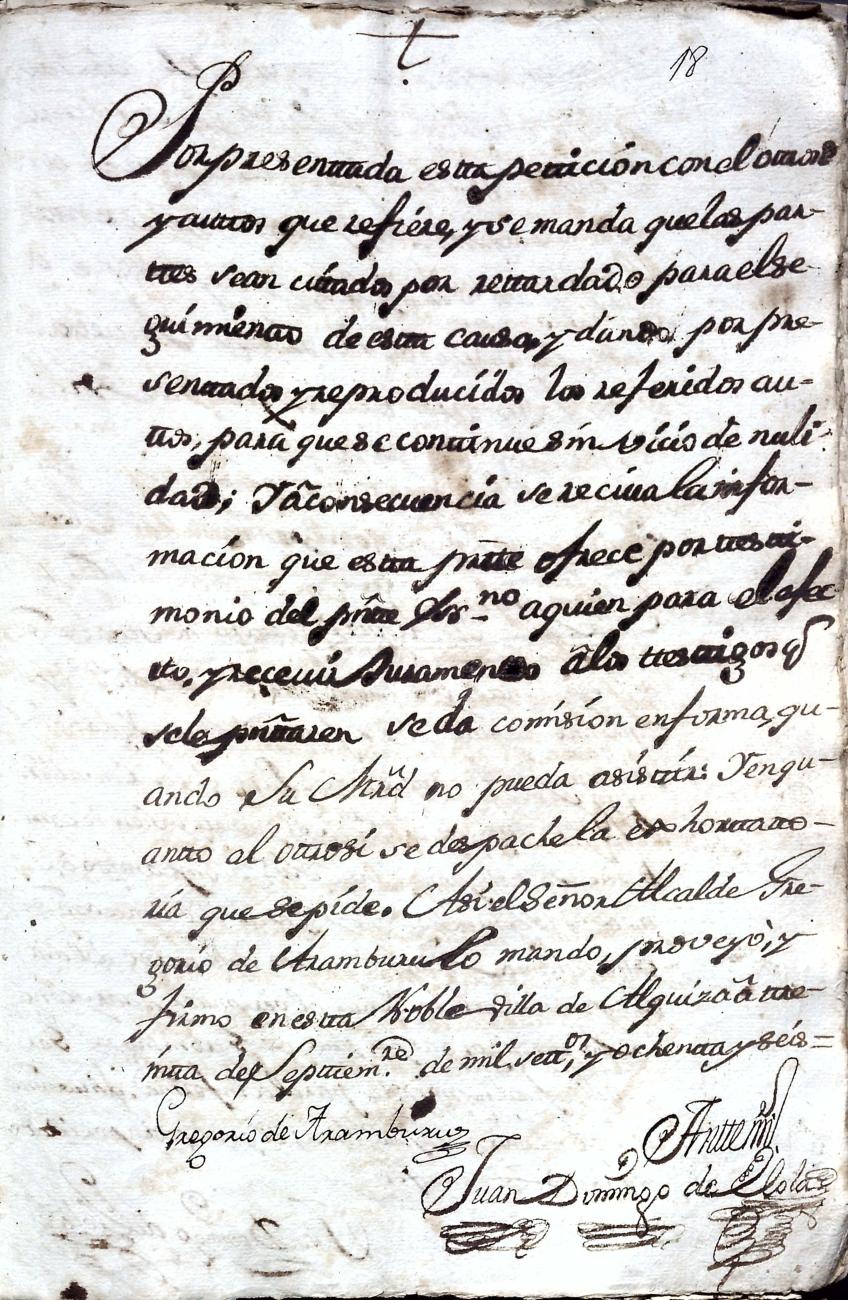 18
Por presenttada estta pettición con el ottrosi
y auttos que refiére, y se manda que las par-
ttes sean cittados por rettardado para el se-
guimientto de estta causa, y dando por pre-
senttados y reproducidos los referidos au-
ttos, para que se conttinue sin vicio de nuli-
dad; Y a consecuencia se reciva la infor-
mación que estta prtte ofrece por ttestti-
monio del pntte Ess.no a quien para el efec-
tto, y recevir Juramentto â los ttesttigos q
se le pnttaren se da comisión en forma, qu-
ando Su Mrd no pueda asisttir: Y en qu-
antto al ottrosi se despache la exhorttatto-
ria que se pide. Asi el Señor Alcalde Gre-
gorio de Aramburu lo mando, proveyò, y
firmo en estta Noble Villa de Alquiza â tre-
intta de Septtiem.re de mil sett.os, y ochentta y seis=
Gregorio de Aramburu
Antte mi
Juan Domingo de